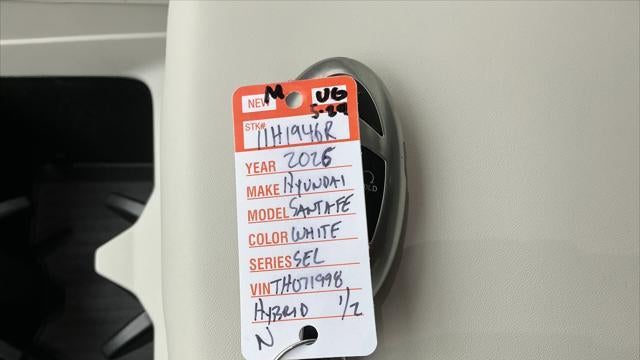 NEW M UG
5-29
STK# 11H1946R
YEAR 2026
MAKE HYUNDAI
MODEL SANTA FE
COLOR WHITE
SERIES SEL
VIN TH071998
HYBRID 1/2
N
OLD